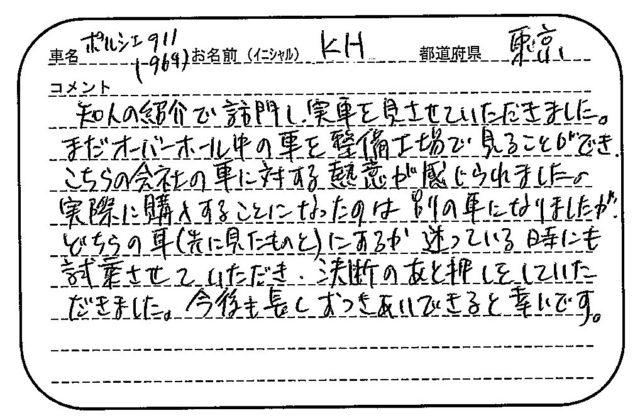 車名 ポルシェ911 (-964) お名前 (イニシャル) KH 都道府県 東京
コメント
知人の紹介で訪門し、実車を見させていただきました。
まだオーバーホール中の車を整備工場で見ることができ、
こちらの会社の車に対する熱意が感じられました。
実際に購入することになったのは別の車になりましたが、
どちらの車(先に見たものと)にするか迷っている時にも
試乗させていただき、決断のあと押しをしていた
だきました。今後も長くおつきあいできると幸いです。